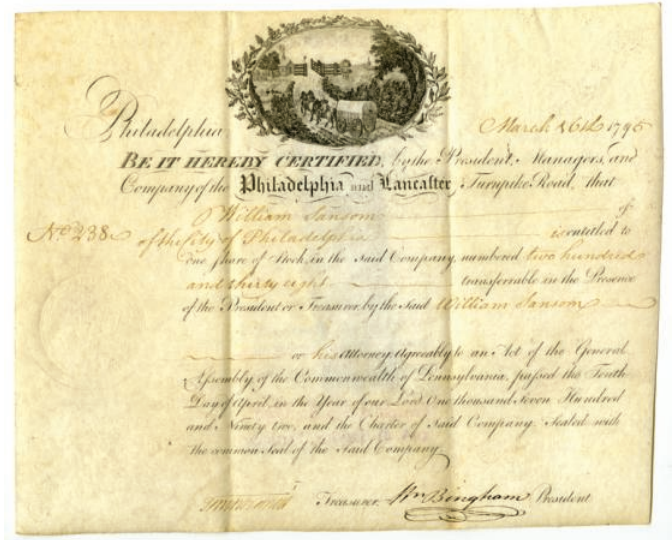 Philadelphia, March 16th 1795
BE IT HEREBY CERTIFIED, by the President, Managers, and
Company of the Philadelphia and Lancaster Turnpike Road, that
William Sansom of
No. 238 of the City of Philadelphia is entitled to
one share of Stock, in the said Company, numbered two hundred
and thirty eight transferrable in the Presence
of the President or Treasurer, by the said William Sansom
or his Attorney Agreeably to an Act of the General
Assembly, of the Commonwealth of Pennsylvania, passed the Tenth
Day of April, in the Year of our Lord One thousand Seven Hundred
and Ninety two, and the Charter of said Company. Sealed with
the common Seal of the said Company
Treasurer. Wm Bingham President